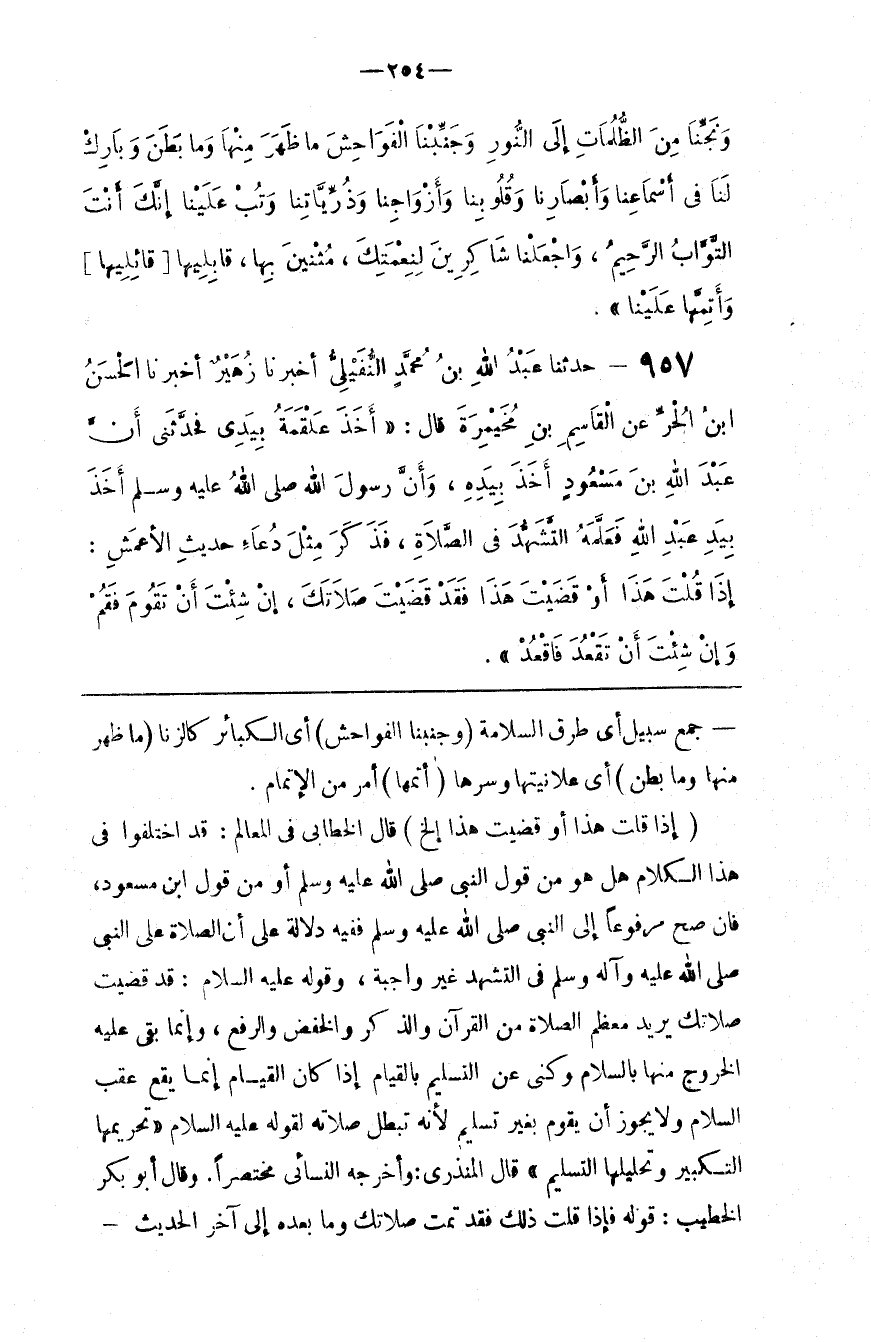 —٢٥٤—
وَنَجِّنَا مِنَ الظُّلُمَاتِ إِلَى النُّورِ وَجَنِّبْنَا الْفَوَاحِشَ ما ظَهَرَ مِنْهَا وَما بَطَنَ وَبَارِكْ
لَنَا فى أَسْمَاعِنا وَأَبْصَارِنا وَقُلُوبِنا وَأَزْوَاجِنا وَذُرِّيَّاتِنا وَتُبْ عَلَيْنا إِنَّكَ أَنْتَ
التَّوَّابُ الرَّحِيمُ ، وَاجْعَلْنا شَاكِرِينَ لِنِعْمَتِكَ ، مُثْنِينَ بِها ، قابِلِيها [ قائِلِيها ]
وَأَتِمَّها عَلَيْنا » .
٩٥٧ — حدثنا عَبْدُ اللهِ بنُ مُحمَّدٍ النُّفَيْلِىُّ أخبرنا زُهَيْرٌ أخبرنا الْحَسَنُ
ابنُ الْحُرِّ عن الْقَاسِمِ بنِ مُخَيْمِرَةَ قال : « أَخَذَ عَلْقَمَةُ بِيَدِى فَحدَّثَنى أَنَّ
عَبْدَ اللهِ بنَ مَسْعُودٍ أَخَذَ بِيَدِهِ ، وَأَنَّ رسولَ اللهِ صلى اللهُ عليه وسلم أَخَذَ
بِيَدِ عَبْدِ اللهِ فَعَلَّمَهُ التَّشَهُّدَ فى الصَّلَاةِ ، فَذَكَرَ مِثْلَ دُعَاءِ حديثِ الأعمَشِ :
إِذَا قُلْتَ هَذَا أَوْ قَضَيْتَ هَذَا فَقَدْ قَضَيْتَ صَلَاتَكَ ، إِنْ شِئْتَ أَنْ تَقُومَ فَقُمْ
وَإِنْ شِئْتَ أَنْ تَقْعُدَ فَاقْعُدْ » .
— جمع سبيل أى طرق السلامة (وجنبنا الفواحش) أى الكبائر كالزنا (ما ظهر
منها وما بطن) أى علانيتها وسرها (أتمها) أمر من الإتمام .
( إذا قلت هذا أو قضيت هذا إلخ ) قال الخطابى فى المعالم : قد اختلفوا فى
هذا الكلام هل هو من قول النبى صلى الله عليه وسلم أو من قول ابن مسعود،
فان صح مرفوعاً إلى النبى صلى الله عليه وسلم ففيه دلالة على أن الصلاة على النبى
صلى الله عليه وآله وسلم فى التشهد غير واجبة ، وقوله عليه السلام : قد قضيت
صلاتك يريد معظم الصلاة من القرآن والذكر والخفض والرفع ، وإنما بقى عليه
الخروج منها بالسلام وكنى عن التسليم بالقيام إذا كان القيام إنما يقع عقب
السلام ولا يجوز أن يقوم بغير تسليم لأنه تبطل صلاته لقوله عليه السلام «تحريمها
التكبير وتحليلها التسليم » قال المنذرى : وأخرجه النسائى مختصراً. وقال أبو بكر
الخطيب : قوله فإذا قلت ذلك فقد تمت صلاتك وما بعده إلى آخر الحديث —